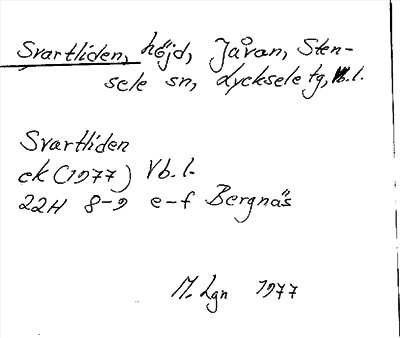 Svartliden, höjd, Jåvan, Sten-
sele sn, Lycksele tg, Vb.l.
Svartliden
ek (1977) Vb.l.
22H 8-9 e-f Bergnäs
M. Lgn 1977